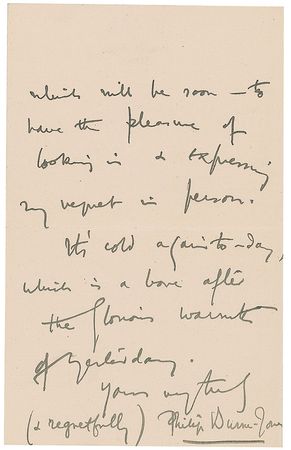 which will be soon – to
have the pleasure of
looking in & expressing
my regret in person.
It's cold again to-day,
which is a bore after
the glorious warmth
of yesterday.
Yours
(& regretfully) Philip Burne-Jones